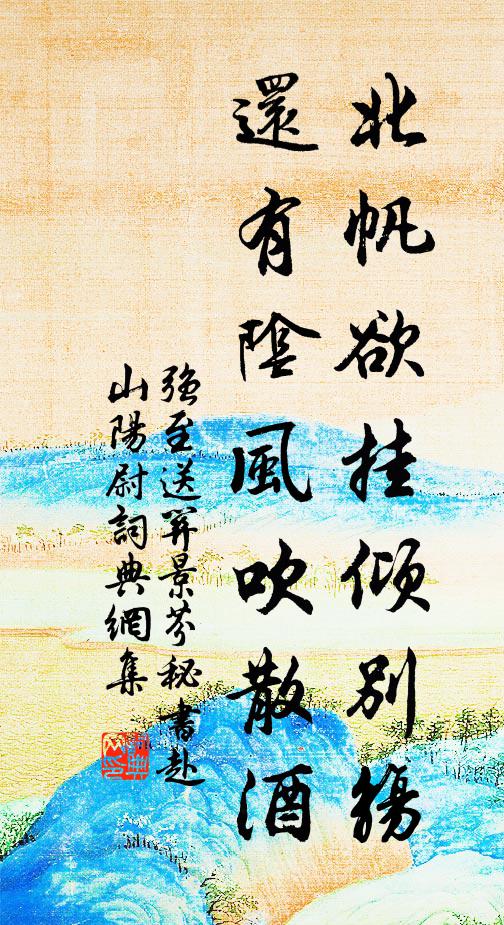 北帆欲挂傾別觴
還有陰風吹散酒
强至送關景芬秘書赴
山陽尉詞典網集